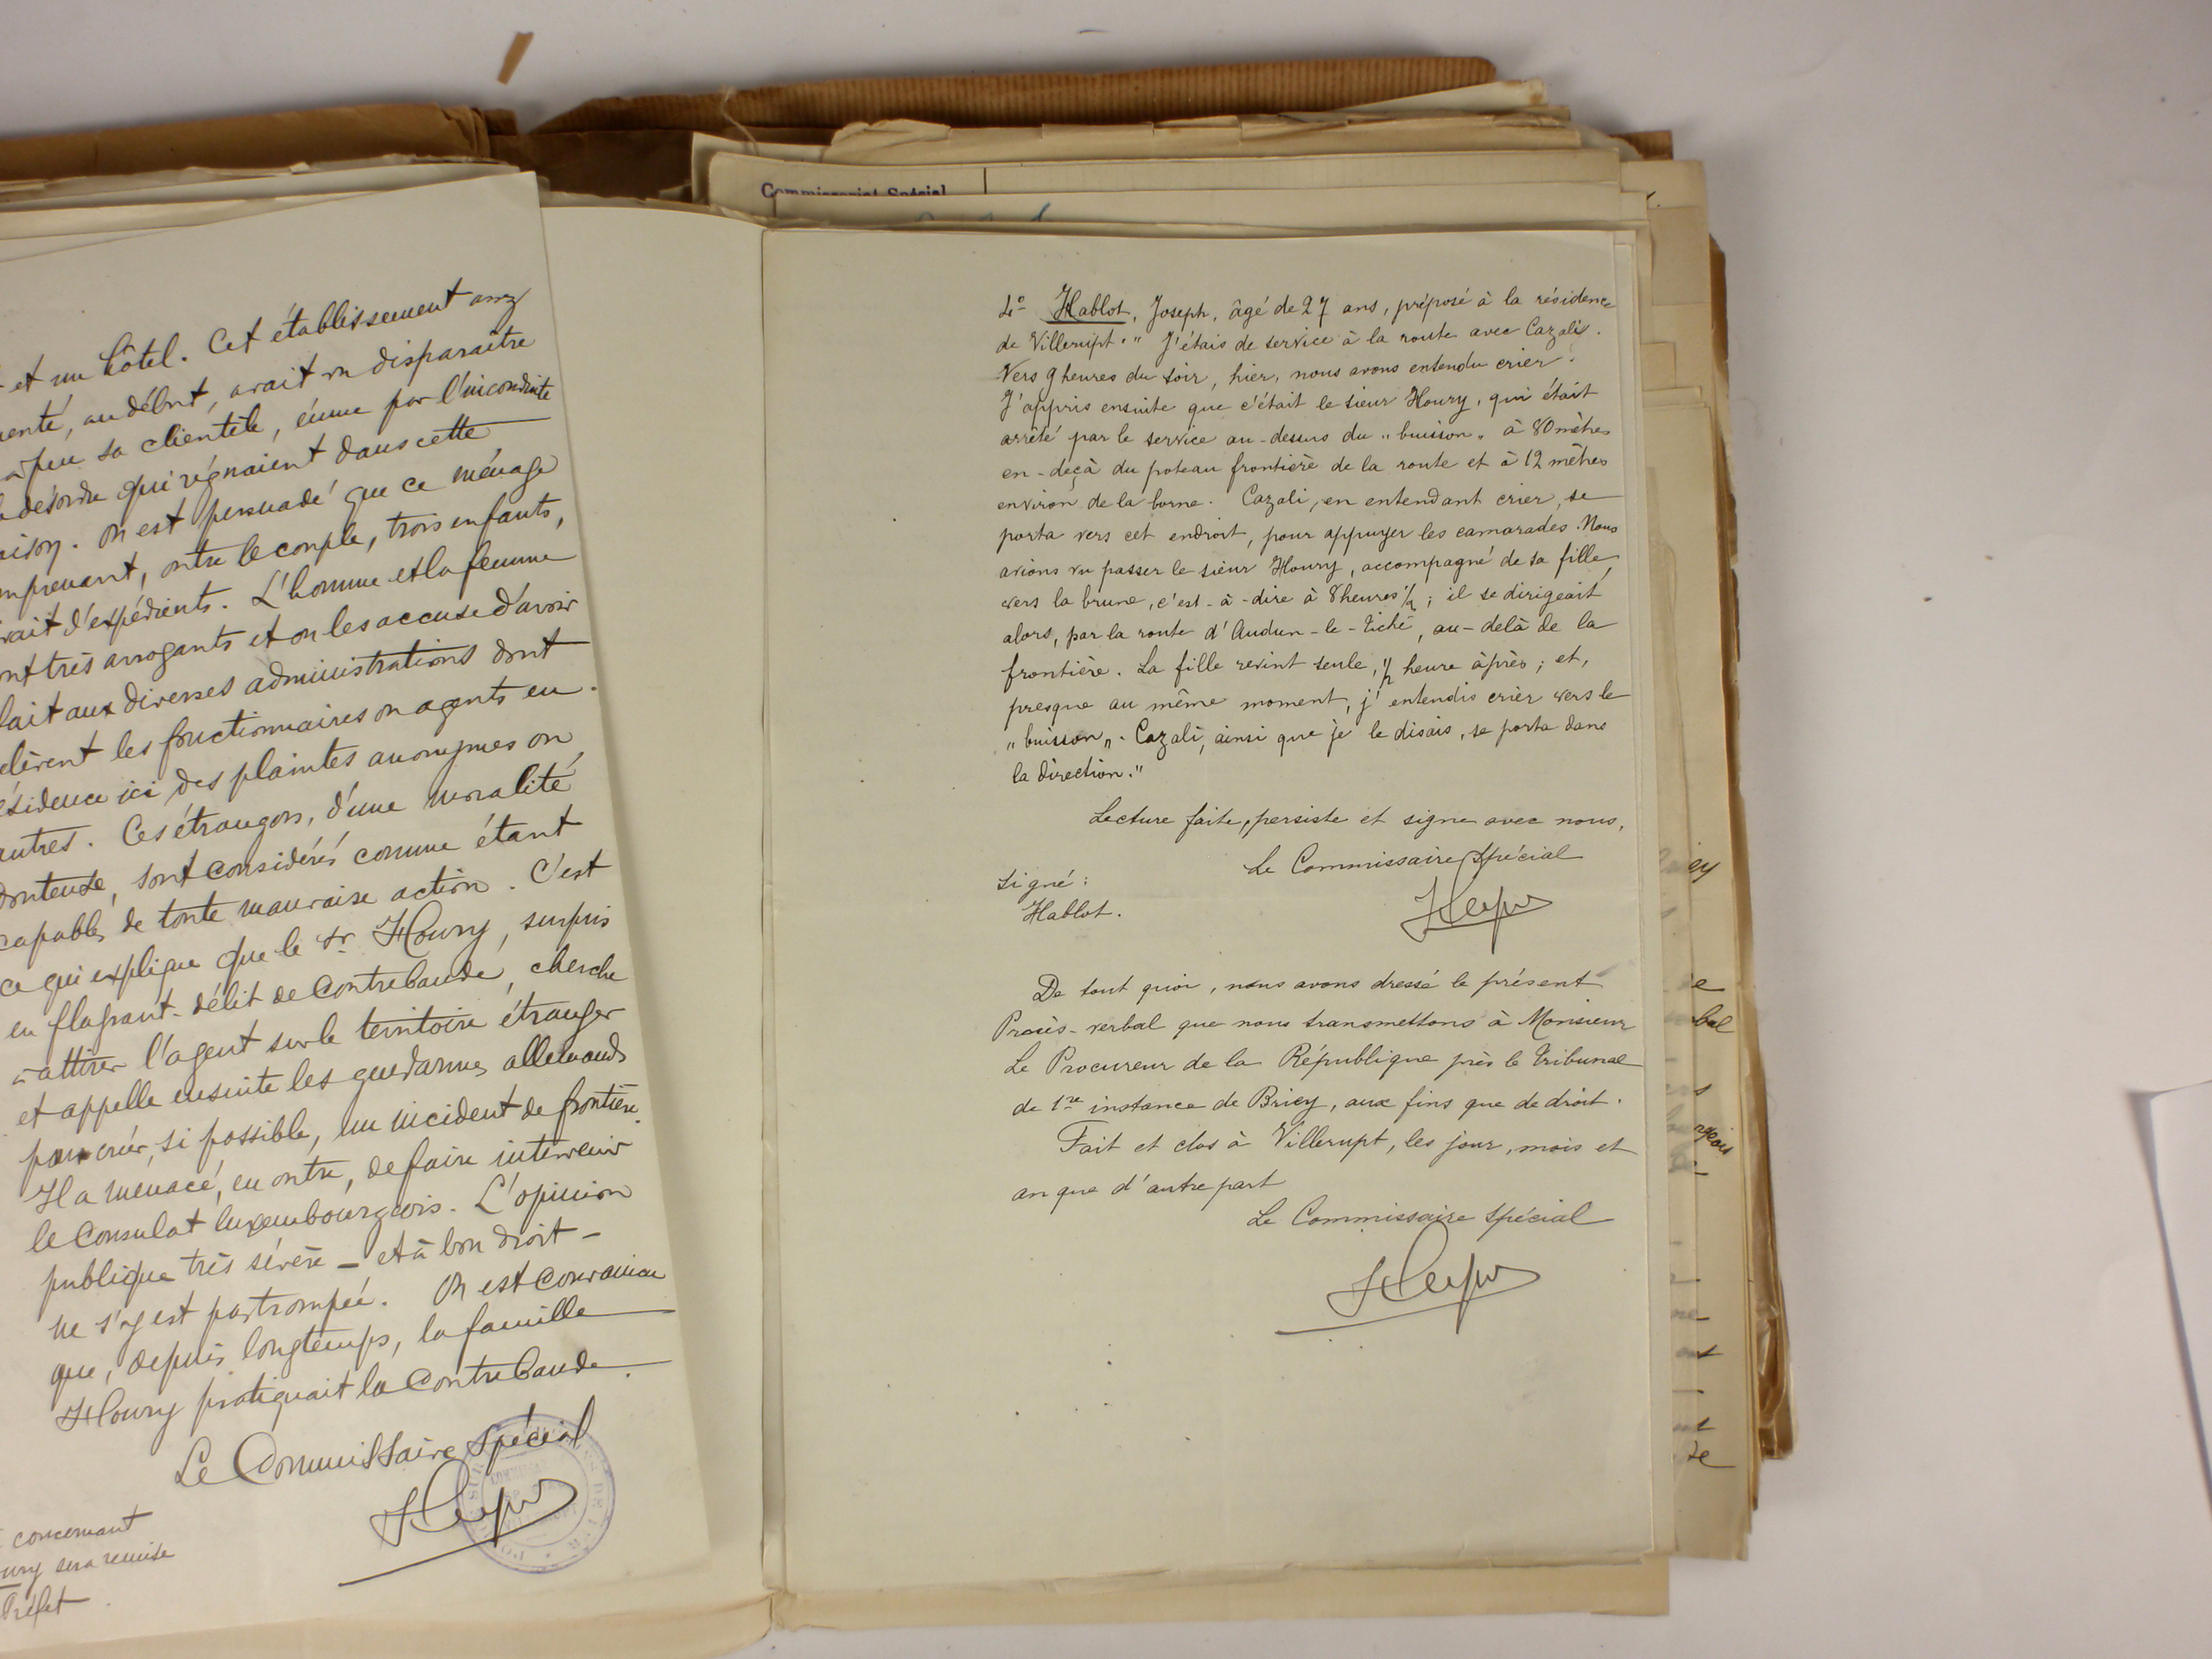 et un hôtel. Cet établissement assez
au début, avait vu disparaître
à peu sa clientèle, émue par l'inconduite
désordre qui régnaient dans cette
On est persuadé que ce ménage
outre le couple, trois enfants,
d'expédients. L'homme et la femme
très arrogants et on les accuse d'avoir
fait aux diverses administrations dont
les fonctionnaires ou agents en
résidence ici des plaintes anonymes ou
autres. Ces étrangers, d'une moralité
douteuse, sont considérés comme étant
capables de toute mauvaise action. C'est
ce qui explique que le Sr Houry, surpris
en flagrant-délit de contrebande, cherche
à attirer l'agent sur le territoire étranger
et appelle ensuite les gendarmes allemands
pour créer, si possible, un incident de frontière.
Il a menacé, en outre, de faire intervenir
le Consulat luxembourgeois. L'opinion
publique très sévère - et à bon droit -
ne s'y est pas trompée. On est convaincu
que, depuis longtemps, la famille
Houry pratiquait la contrebande.
Le Commissaire spécial
concernant
sera remise
Préfet
Commissariat Spécial
4° Hablot, Joseph, âgé de 27 ans, préposé à la résidence
de Villerupt. " J'étais de service à la route avec Cazali.
Vers 9 heures du soir, hier, nous avons entendu crier.
J'appris ensuite que c'était le sieur Houry, qui était
arrêté par le service au-dessus du "buisson" à 80 mètres
en-deçà du poteau frontière de la route et à 12 mètres
environ de la borne. Cazali, en entendant crier, se
porta vers cet endroit, pour appuyer les camarades. Nous
avions vu passer le sieur Houry, accompagné de sa fille,
vers la brune, c'est-à-dire à 8 heures 1/2; il se dirigeait
alors, par la route d'Audun-le-Tiche, au-delà de la
frontière. La fille revint seule, 1/2 heure àprès; et,
presque au même moment, j'entendis crier vers le
"buisson". Cazali, ainsi que je le disais, se porta dans
la direction."
Lecture faite, persiste et signe avec nous,
Le Commissaire spécial
Signé:
Hablot.
De tout quoi, nous avons dressé le présent
Procès-verbal que nous transmettons à Monsieur
Le Procureur de la République près le Tribunal
de 1re instance de Briey, aux fins que de droit.
Fait et clos à Villerupt, les jour, mois et
an que d'autre part
Le Commissaire spécial